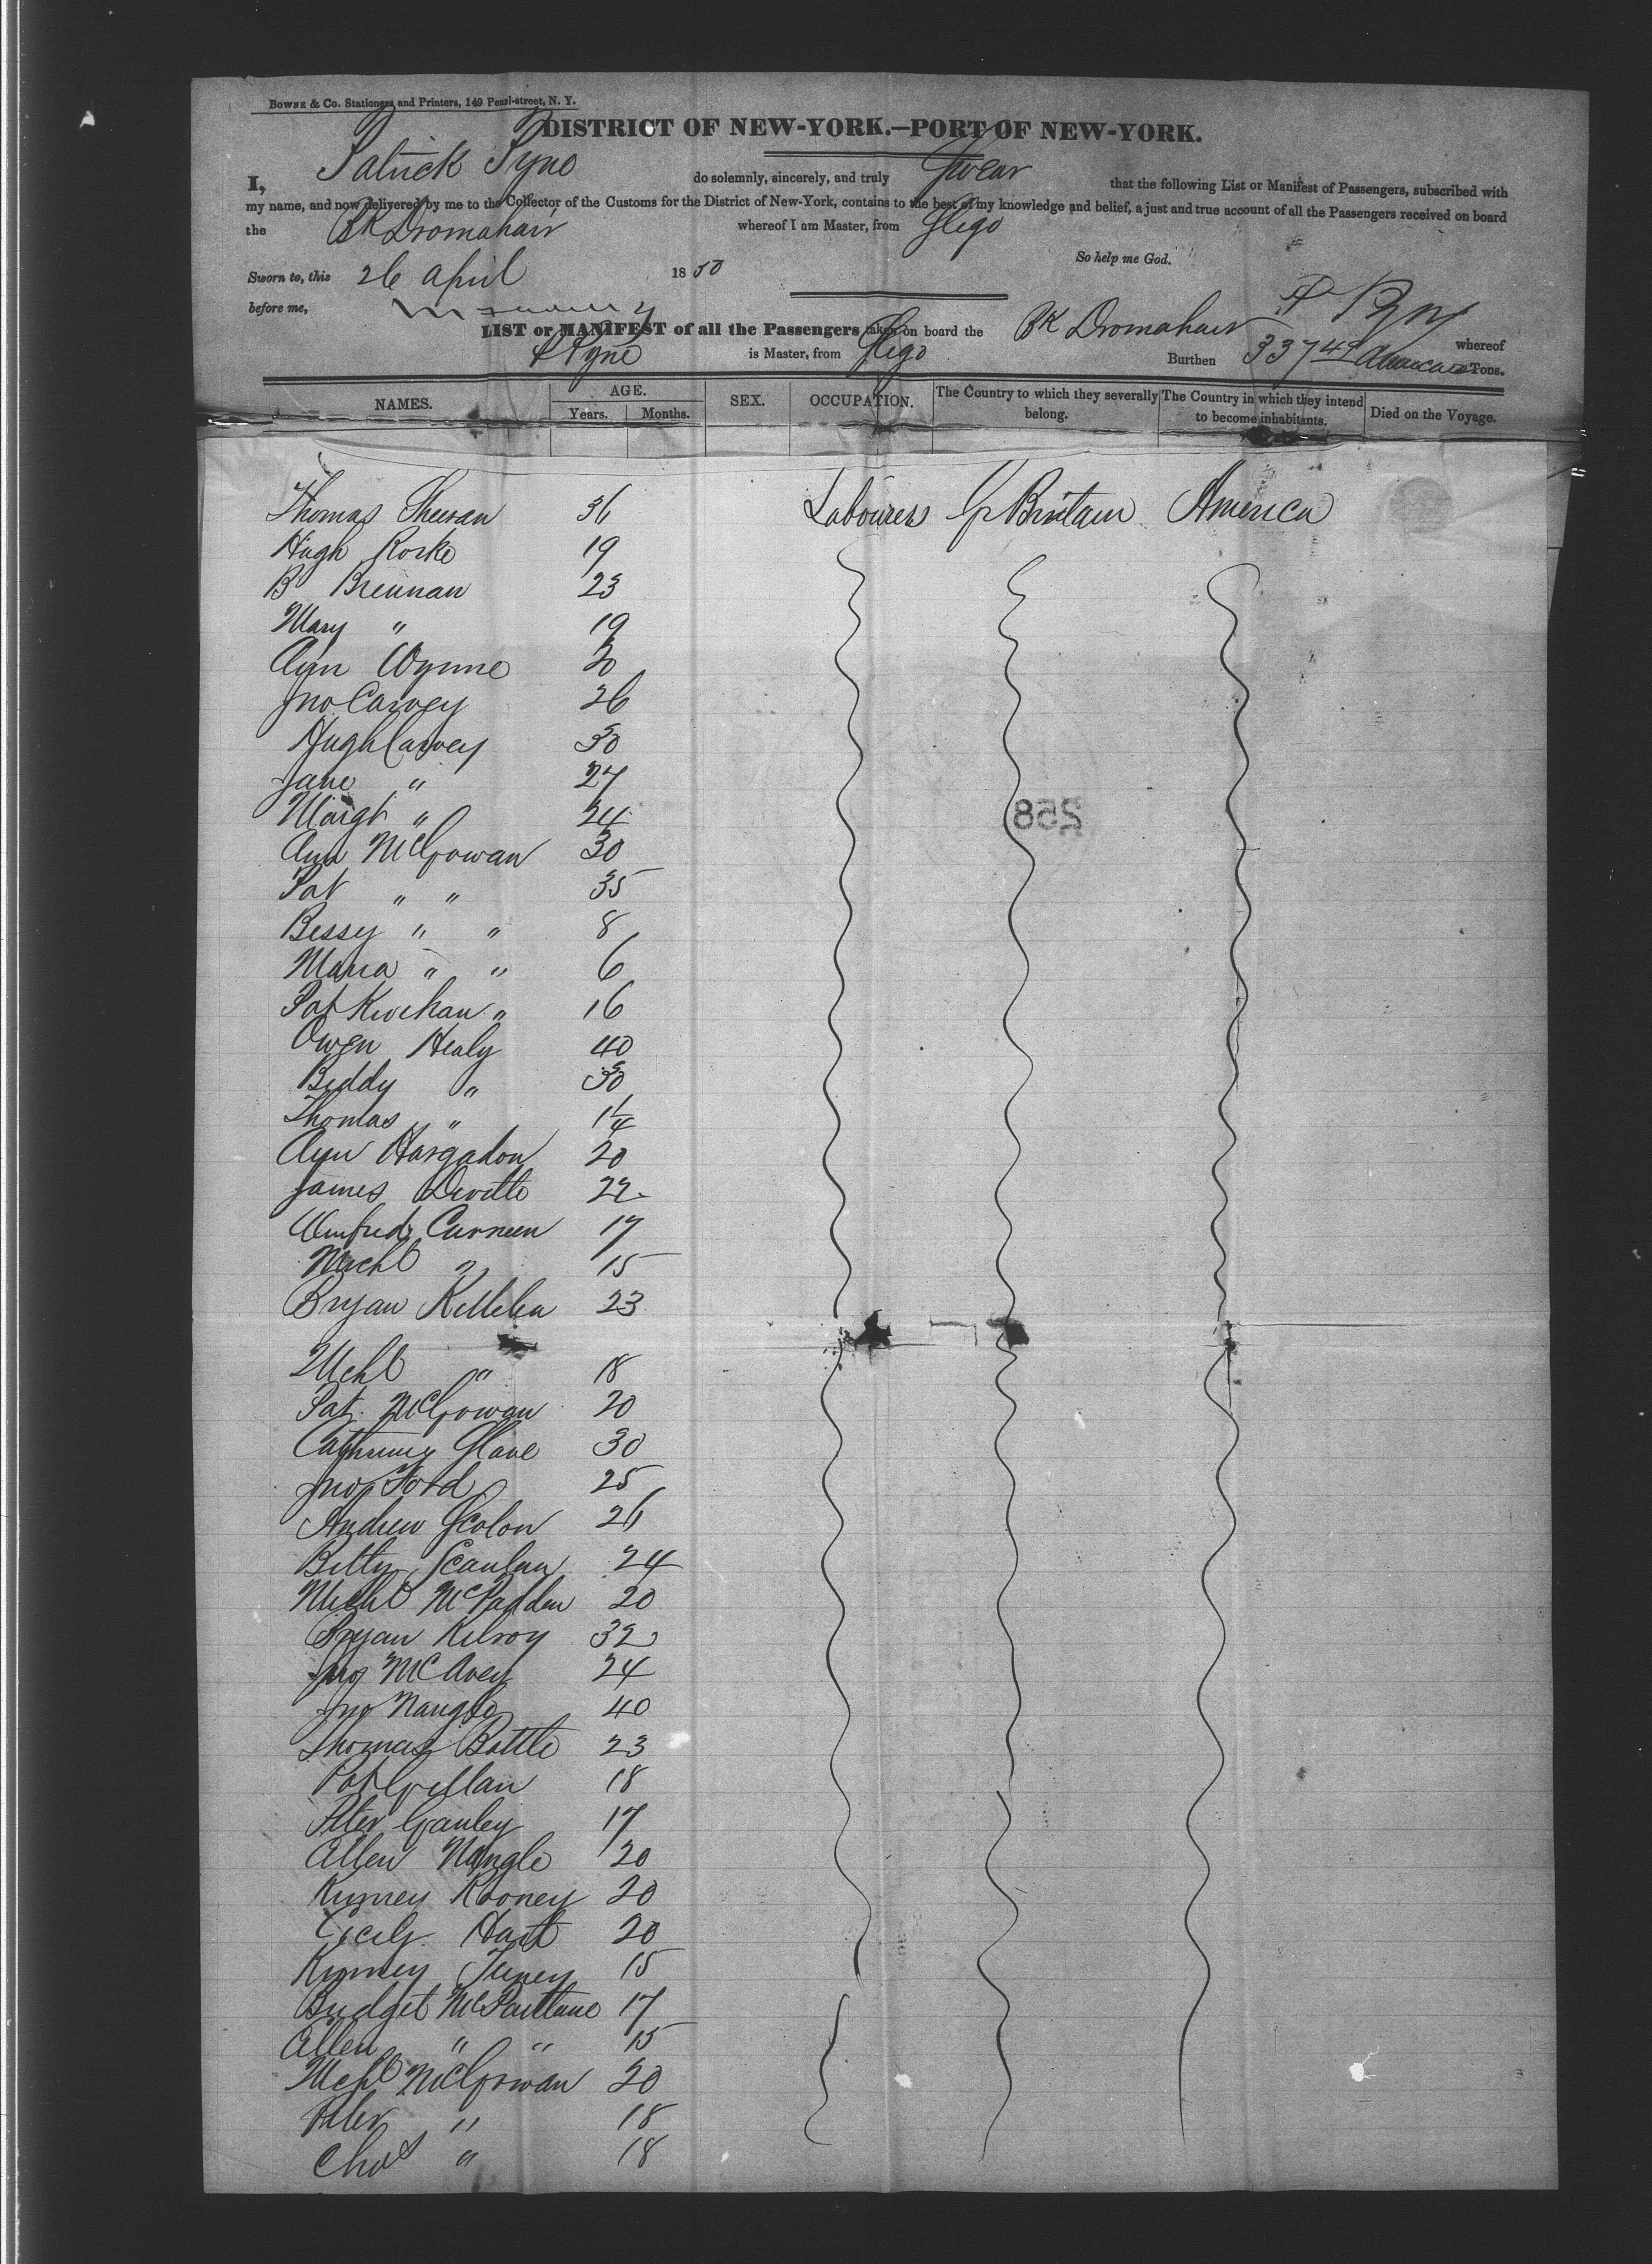 BOWNE & Co. Stationers and Printers, 149 Pearl-street, N. Y.
DISTRICT OF NEW-YORK.—PORT OF NEW-YORK.
I, Patrick Pyne do solemnly, sincerely, and truly Swear that the following List or Manifest of Passengers, subscribed with
my name, and now delivered by me to the Collector of the Customs for the District of New-York, contains to the best of my knowledge and belief, a just and true account of all the Passengers received on board
the Bk Dromahair whereof I am Master, from Sligo
So help me God.
Sworn to, this 26 April 1850
before me, P Pyne
LIST or MANIFEST of all the Passengers taken on board the Bk Dromahair whereof
P Pyne is Master, from Sligo Burthen 337 49 American Tons.
NAMES. AGE. Years. Months. SEX. OCCUPATION. The Country to which they severally belong. The Country in which they intend to become inhabitants. Died on the Voyage.
Thomas 36 Labourers Gr Britain America
Hugh Rorke 19
B Brennan 23
Mary " 19
Ann Wynne 20
Jno Carvey 26
Hugh Carvey 30
Jane " 27
Margt " 24
258
Ann McGowan 30
Pat " " 35
Bessy " " 8
Maria " " 6
Pat " 16
Owen Healy 40
Biddy " 30
Thomas " 1 1/4
Ann Hargadon 20
James 22
Winfred Curneen 17
Michl " 15
Bryan Kilelea 23
Michl " 18
Pat McGowan 20
Slave 30
Jno Ford 25
Andrew Scolon 26
Betty Scanlan 24
Michl McPadden 20
Bryan Kilroy 32
Jno McAvey 24
Jno Nangle 40
Thomas Battle 23
Pat Gillan 18
Peter Ganley 17
Allen Nangle 20
Rooney 20
Cicily Hart 20
15
Bridget McPartlane 17
Allen " " 15
Michl McGowan 20
Peter " 18
Chas " 18